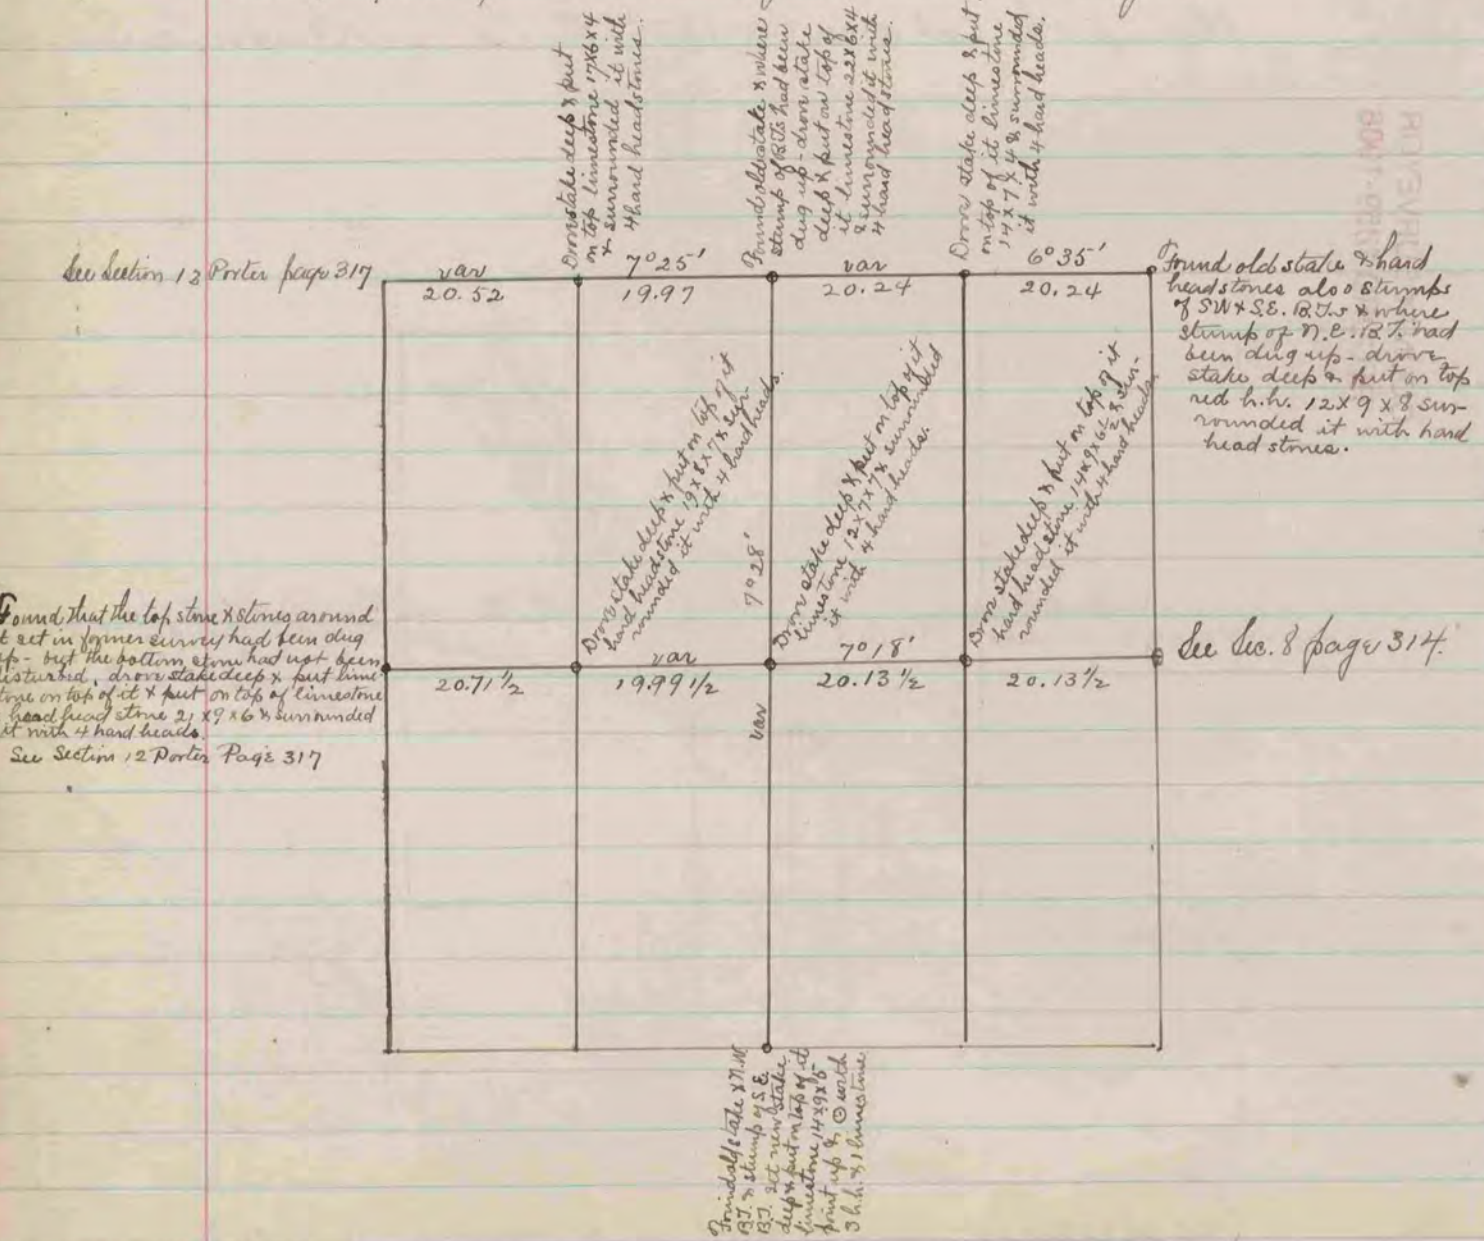 Drove stake deep & put
on top limestone 17x6x4
& surrounded it with
4 hard headstones.
Found old stake & where
stump of B.Ts had been
dug up - drove stake
deep & put on top of
it limestone 22x6x4
& surrounded it with
4 hard head stones.
Drove stake deep & put
on top of it limestone
14 x 7 x 4 & surrounded
it with 4 hard heads.
See Section 12 Porter page 317
var
7° 25'
var
6° 35'
20.52
19.97
20.24
20.24
Found old stake & hard
headstones also stumps
of SW & S.E. B.T.s & where
stump of N.E. B.T. had
been dug up - drove
stake deep & put on top
red h.h. 12 x 9 x 8 sur-
rounded it with hard
head stones.
Drove stake deep & put on top of it
hard headstone 19 x 8 x 7 & sur-
rounded it with 4 hard heads.
7° 28'
Drove stake deep & put on top of it
limestone 12 x 7 x 7 & surrounded
it with 4 hard heads.
Drove stake deep & put on top of it
hard head stone 14 x 9 x 6 1/2 & sur-
rounded it with 4 hard heads.
Found that the top stone & stones around
it set in former survey had been dug
up - but the bottom stone had not been
disturbed, drove stake deep & put lime
stone on top of it & put on top of limestone
head head stone 21 x 9 x 6 & surrounded
it with 4 hard heads.
See Section 12 Porter Page 317
var
7° 18'
20.71 1/2
19.99 1/2
20.13 1/2
20.13 1/2
See Sec. 8 page 314.
var
Found old stake & N.W.
B.T. & stump of S.E.
B.T. set new stake
deep & put on top of it
limestone 14 x 9 x 5
point up & ⊙ with
3 h.h. & 1 limestone